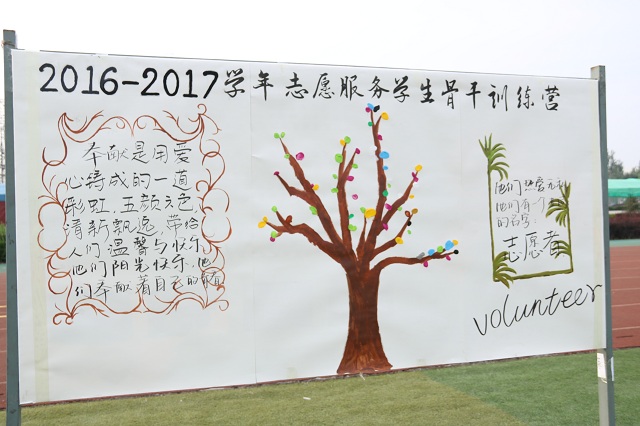 2016-2017学年志愿服务学生骨干训练营
奉献是用爱
心铸成的一道
彩虹,五颜六色,
清新飘逸,带给
人们温馨与快乐
他们阳光快乐,他
们奉献着自己的
他们热爱
他们有个
的名字:
志愿者
volunteer